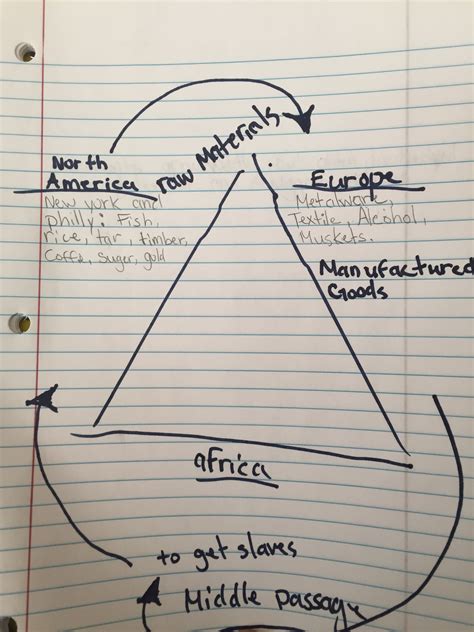 raw Materials
North
America
New york and
philly: Fish,
rice, tar, timber,
Coffe, Suger, gold
Europe
Metalware,
Textile, Alcohol,
Muskets.
Manufactured
Goods
africa
to get slaves
Middle passage